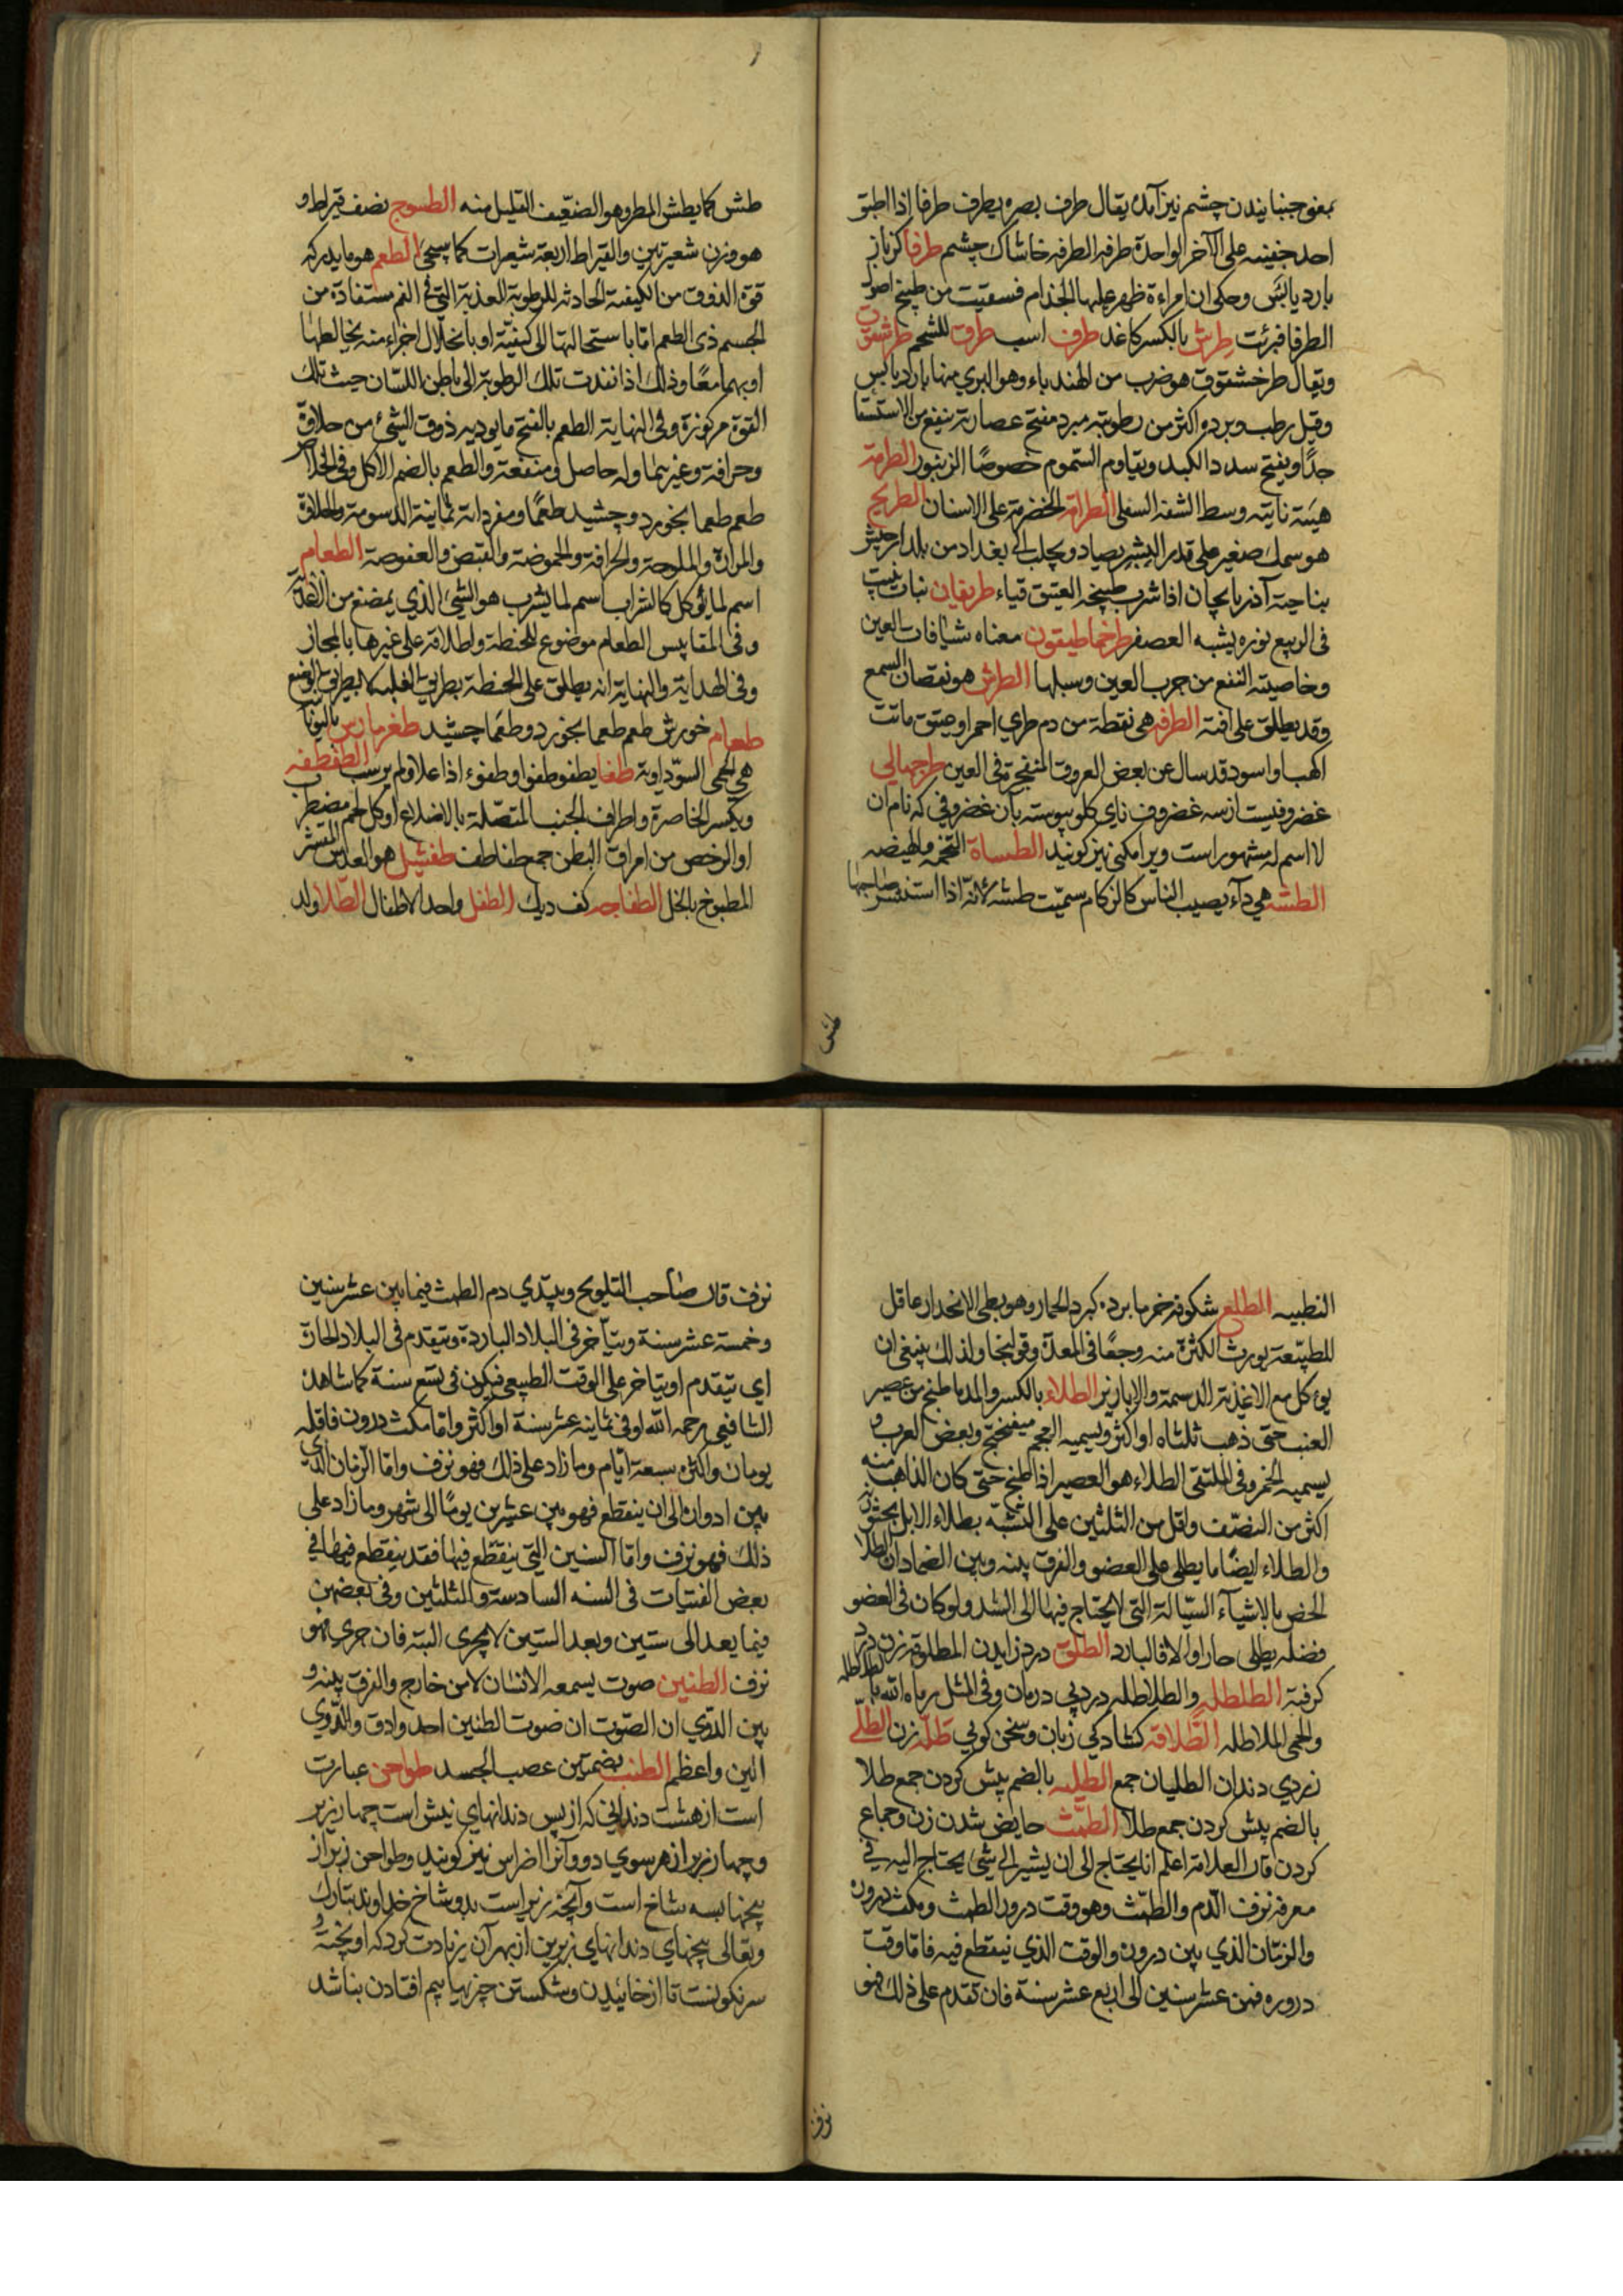 بمعنی جنبانیدن چشم نیز آمده یقال طرف بصره یطرف طرفا اذا اطبق
احد جفنیه علی الآخر الواحدة طرفه الطرفه خاشاک چشم طرفا کزمازز
بارد یابس وحکی ان امراءة ظهر علیها الجذام فسقیت من طبیخ اصول
الطرفا فبرئت طرش بالکسر کاغد طرف اسب طرق للشحم طرشقوق
ویقال طرخشقوق هو ضرب من الهندباء وهو البری منها بارد یابس
وقیل رطب وبرده اکثر من رطوبته مبرد مفتح عصارته ینفع من الاستسقا
جدا ویفتح سدد الکبد ویقاوم السموم خصوصا الزنبور الطرمة
هیئة ناتیه وسط الشفه السفلی الطرامة الخضرة علی الاسنان الطریخ
هو سمک صغیر علی قدر الشبر یصاد ویجلب الی بغداد من بلد ارجیش
بناحیة آذربایجان اذا شرب طبیخه العتیق قیاء طریفان نبات ینبت
فی الربیع نوره یشبه العصفر طرخماطیقون معناه شیافات العین
وخاصیته النفع من جرب العین وسبلها الطرش هو نقصان السمع
وقد یطلق علی افته الطرفه هی نقطة من دم طری احمر او عتیق مائت
اکهب او اسود قد سال عن بعض العروق المنفجرة فی العین طرجهالی
غضروفیست از سه غضروف نای کلو پیوسته بآن غضروفی که نام آن
لا اسم له مشهور است ویرا مکبی نیز کویند الطساة التخمه والهیضه
الطشه هی دآء یصیب الناس کالزکام سمیت طشه لانه اذا استنثر صاحبها
طش
طش کما یطش المطر وهو الضعیف القلیل منه الطسوج نصف قیراط او
هو وزن شعیرتین والقیراط اربعة شعیرات کما سیجئ الطعم هو ما یدرکه
قوة الذوق من الکیفیه الحادثه للرطوبة العذبة التی فی الفم مستفادة من
الجسم ذی الطعم اما باستحالتها الی کیفیته او بانحلال اجزاء منه یخالطها
او بهما معا وذلک اذا نفذت تلک الرطوبة الی باطن اللسان حیث تلک
القوة مرکوزة وفی النهایة الطعم بالفتح ما یودیه ذوق الشئ من حلاوة
وحرافة وغیرهما وله حاصل ومنفعة والطعم بالضم الاکل وفی الخلاص
طعم طعما بخورد وچشید طعما ومفرداته ثمانیة الدسومة والحلاوة
والمرارة والملوحة والحرافة والحموضة والقبض والعفوصة الطعام
اسم لما یؤکل کالشراب اسم لما یشرب هو الشئ الذی یمضغ من الاغذیة
وفی المقاییس الطعام موضوع للحنطة واطلاقه علی غیرها بالمجاز
وفی الهدایة والنهایة انه یطلق علی الحنطة بطریق الغلبه لا بطریق الوضع
طعام خورش طعم طعما بخورد وطعما چشید طغرمارس بالیونانیة
هی الحمی السوداویة طفا یطفو طفوا وطفوء اذا علا ولم یرسب الطفطفه
ویکسر الخاصرة واطراف الجنب المتصلة بالاضلاع او کل لحم مضطرب
او الرخص من امراق البطن جمع طفاطف طفشیل هو العدس المقشر
المطبوخ بالخل الطفاحه کف دیک الطفل واحد الاطفال الطلا ولد
النطبیه الطلع شکوفه خرما برده کبرد الجمار وهو بطی الانحدار عاقل
للطبیعة یورث الکثرة منه وجعا فی المعدة وقولنجا ولذلک ینبغی ان
یوءکل مع الاغذیة الدسمة والابازیر الطلاء بالکسر والمد ما طبخ من عصیر
العنب حتی ذهب ثلثاه او اکثر ویسمیه العجم میفختج وبعض العرب
یسمیه الخمر وفی الملتقی الطلاء هو العصیر اذا طبخ حتی کان الذاهب منه
اکثر من النصف واقل من الثلثین علی التشبه بطلاء الابل بخثورته
والطلاء ایضا ما یطلی علی العضو والفرق بینه وبین الضماد ان الطلا
الخص بالاشیآء السیالة التی لا یحتاج فیها الی الشد ولو کان فی العضو
فضله یطلی حارا والا فالبارد الطلق درد زاییدن المطلوقه زن درد
کرفته الطلطله والطلاطله درد بی درمان وفی المثل رماه الله بالطلاطله
والحمی المماطله الطلاقة کشادکی زبان وسخن کویی طله زن الطلی
زردی دندان الطلیان جمع الطلیه بالضم پیش کردن جمع طلا
بالضم پیش کردن جمع طلا الطمث حایض شدن زن وجماع
کردن قال العلامة اعلم انا یحتاج الی ان یشیر الی شئ یحتاج الیه فی
معرفه نزف الدم والطمث وهو وقت درور الطمث ومکث دروره
والزمان الذی بین دروره والوقت الذی ینقطع فیه فاما وقت
دروره فمن عشر سنین الی اربع عشر سنة فان تقدم علی ذلک فهو
نزف
نزف قال صاحب التلویح ویبتدی دم الطمث فیما بین عشر سنین
وخمسة عشر سنة ویتأخر فی البلاد الباردة ویتقدم فی البلاد الحارة
ای یتقدم او یتاخر علی الوقت الطبیعی فیکون فی تسع سنة کما شاهده
الشافعی رحمه الله او فی ثمانیه عشر سنة او اکثر واما مکث دروره فاقله
یومان واکثره سبعة ایام وما زاد علی ذلک فهو نزف واما الزمان الذی
بین ادواره الی ان ینقطع فهو بین عشرین یوما الی شهر وما زاد علی
ذلک فهو نزف واما السنین التی ینقطع فیها فقد ینقطع فیها فی
بعض الفتیات فی السنه السادسة والثلثین وفی بعضهن
فیما بعد الی ستین وبعد الستین لا یجری البته فان جری فهو
نزف الطنین صوت یسمعه الانسان لا من خارج والفرق بینه و
بین الدوی ان الصوت ان صوت الطنین احد وادق والدوی
الین واعظم الطنب بضمتین عصب الجسد طواحن عبارت
است از هشت دندانی که از پس دندانهای نیش است چهار زیر
وچهار زبر از هر سوی دو وآنرا اضراس نیز کویند وطواحن زبر از
بیخها بسه شاخ است وآنچه زیر است بدو شاخ خداوند تبارک
وتعالی بیخهای دندانهای زبرین از بهر آن زیادت کرد که آویخته و
سرنکونست تا از خائیدن وشکستن چیزها بیم افتادن بناشد